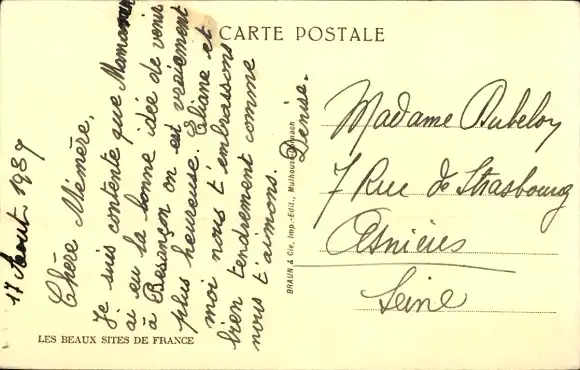 CARTE POSTALE
17 Aout 1937
Chère Mémère,
Je suis contente que Maman
ai eu la bonne idée de venir
à Besançon on est vraiement
plus heureuse. Eliane et
moi nous t'embrassons
bien tendrement comme
nous t'aimons.
Denise.
BRAUN & Cie, Imp.-Edit., Mulhouse-Dornach
Madame Dubeloy
7 Rue de Strasbourg
Asnières
Seine
LES BEAUX SITES DE FRANCE